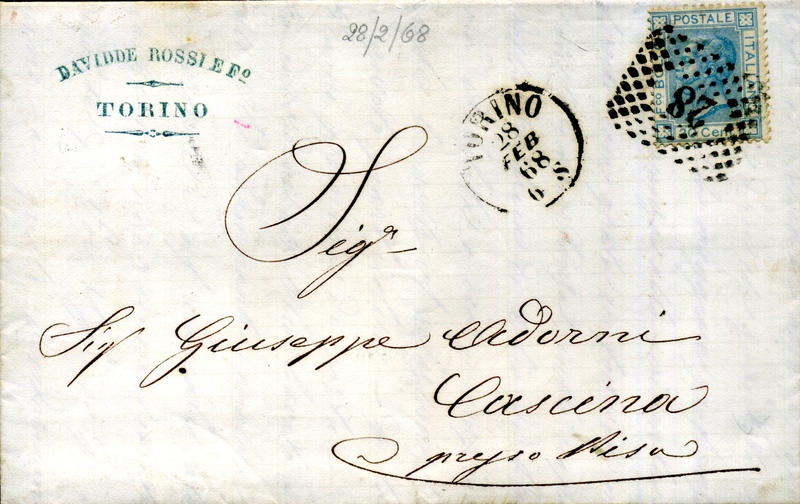 28/2/68
DAVIDDE ROSSI E Fo
TORINO
TORINO
28
FEB
68
6 S
Fco BOLLO POSTALE ITALIANO
20 Cent
28
Sigr
Sigr Giuseppe Adorni
Cascina
presso Pisa